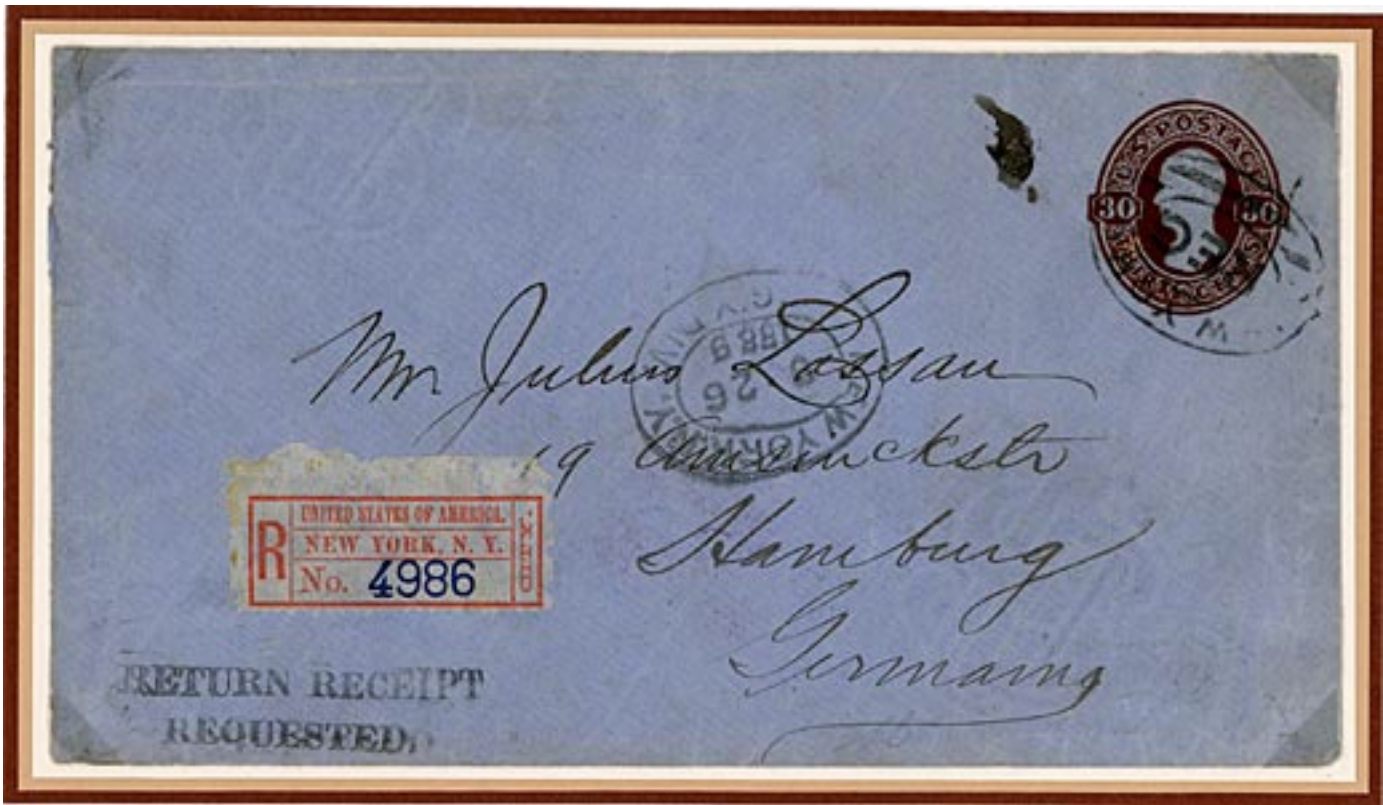 U.S. POSTAGE
30 30
THIRTY CENTS
Mr Julius Lossau
19 Amsinckstr
Hamburg
Germany
NEW YORK, N.Y.
26
1889
R
UNITED STATES OF AMERICA.
NEW YORK, N. Y.
No. 4986
RETURN RECEIPT
REQUESTED.